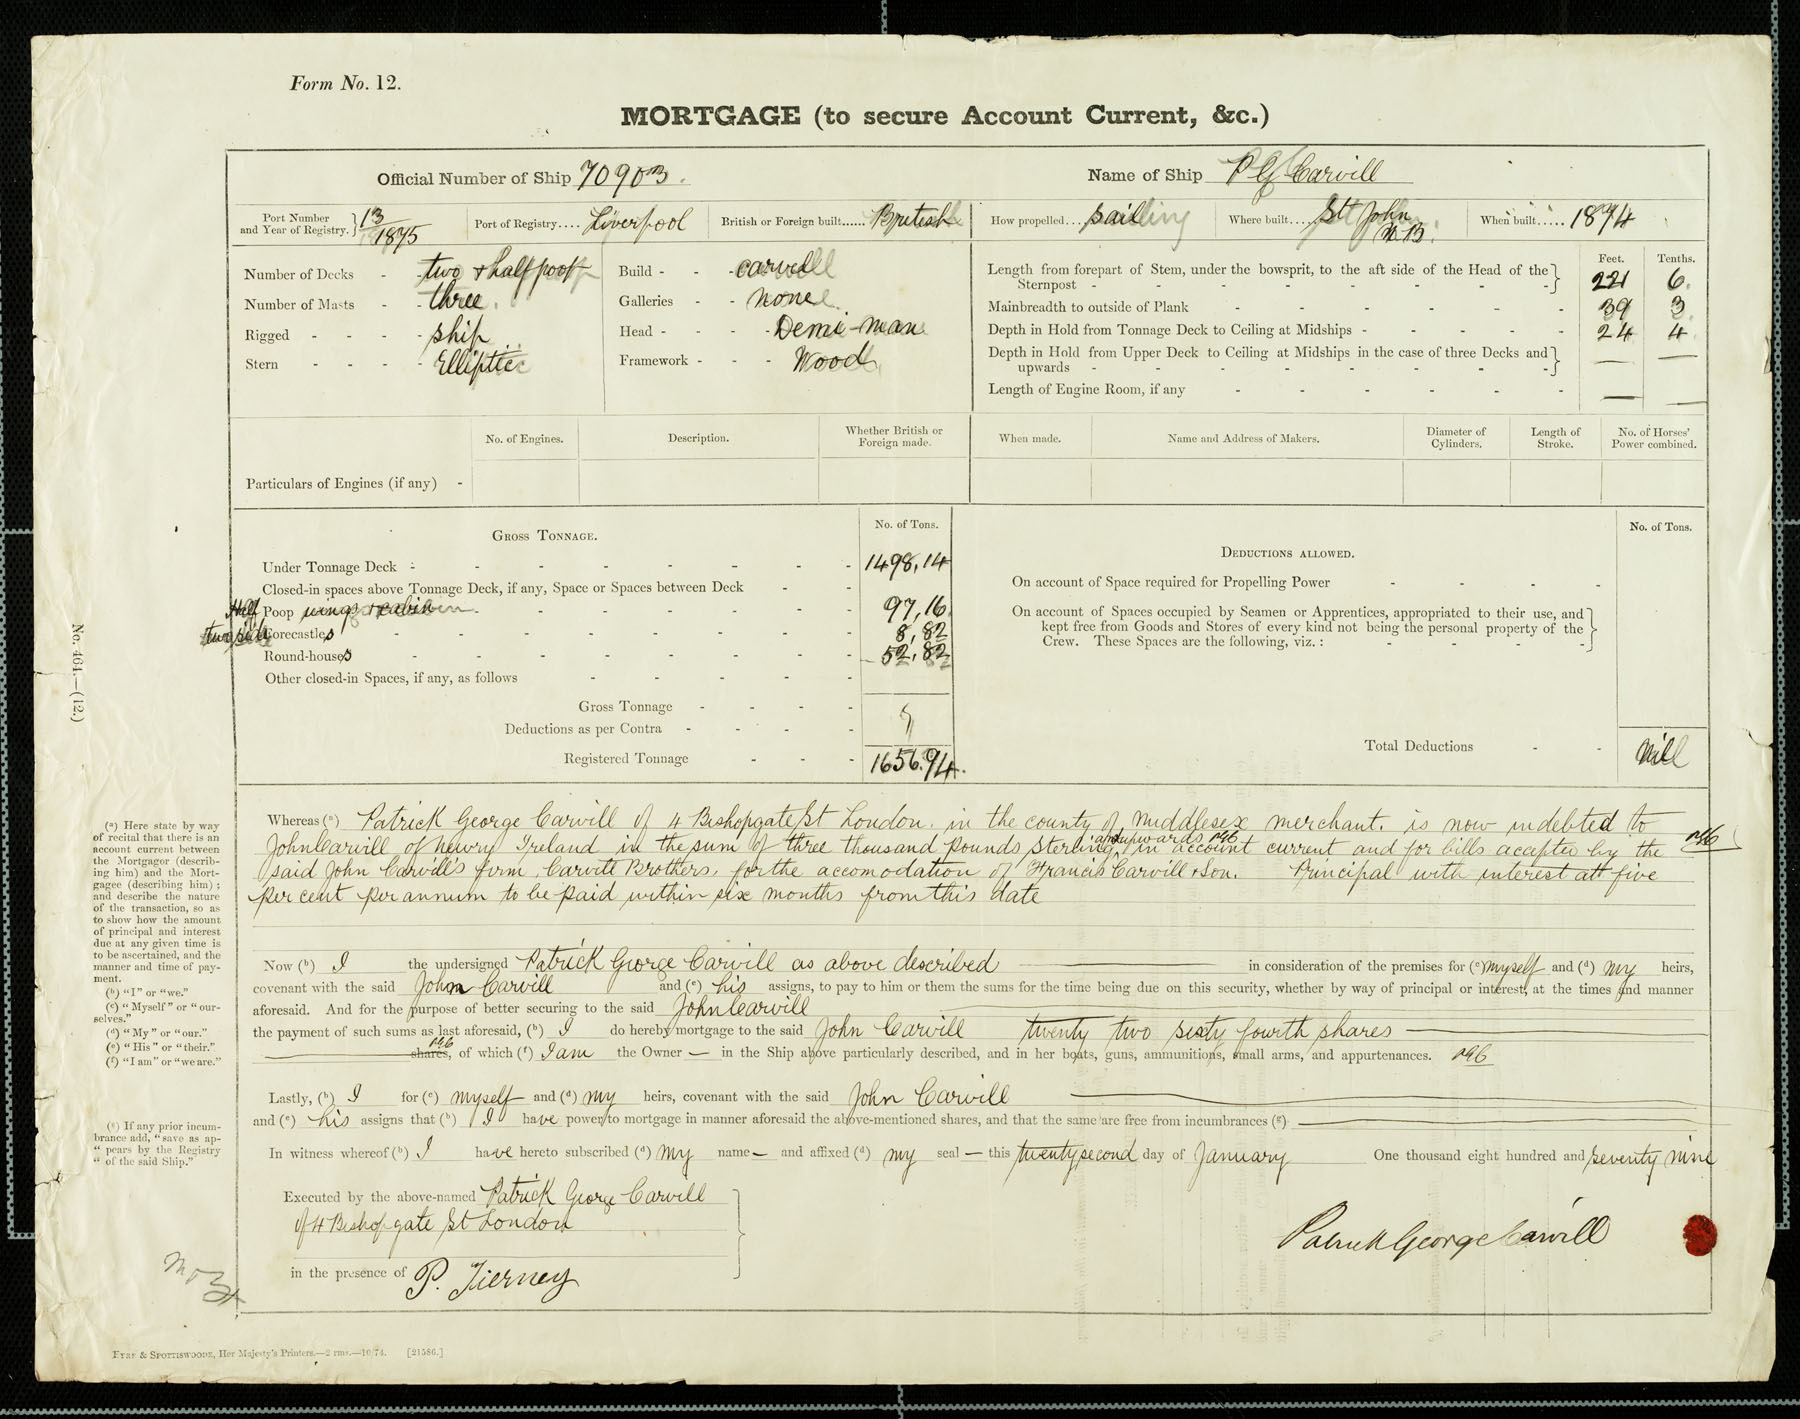 Form No. 12.
MORTGAGE (to secure Account Current, &c.)
Official Number of Ship 70903.
Name of Ship P G Carvill
Port Number and Year of Registry. } 13/1875
Port of Registry.... Liverpool
British or Foreign built...... British
How propelled.... sailing
Where built.... St John N.B.
When built..... 1874
Number of Decks - - two & half poop
Number of Masts - - three
Rigged - - - - ship
Stern - - - - Elliptic
Build - - - carvel
Galleries - - none
Head - - - Demi-man
Framework - - Wood
Feet. Tenths.
Length from forepart of Stem, under the bowsprit, to the aft side of the Head of the Sternpost } 221 6.
Mainbreadth to outside of Plank 39 3
Depth in Hold from Tonnage Deck to Ceiling at Midships 24 4
Depth in Hold from Upper Deck to Ceiling at Midships in the case of three Decks and upwards } —— ——
Length of Engine Room, if any —— ——
No. of Engines.
Description.
Whether British or Foreign made.
When made.
Name and Address of Makers.
Diameter of Cylinders.
Length of Stroke.
No. of Horses' Power combined.
Particulars of Engines (if any) -
GROSS TONNAGE.
No. of Tons.
Under Tonnage Deck 1498,14
Closed-in spaces above Tonnage Deck, if any, Space or Spaces between Deck
Half Poop wings & cabin 97,16
two side Forecastles 8,82
Round-houses 52,82
Other closed-in Spaces, if any, as follows
Gross Tonnage
Deductions as per Contra
Registered Tonnage 1656.94.
DEDUCTIONS ALLOWED.
No. of Tons.
On account of Space required for Propelling Power
On account of Spaces occupied by Seamen or Apprentices, appropriated to their use, and
kept free from Goods and Stores of every kind not being the personal property of the
Crew. These Spaces are the following, viz. :
Total Deductions - - Nill
No. 461.—(12.)
Whereas (a) Patrick George Carvill of 4 Bishopgate St London. in the county of Middlesex merchant. is now indebted to
John Carvill of Newry Ireland in the sum of three thousand pounds Sterling and upwards in account current and for bills accepted by the
said John Carvill's firm Carvill Brothers, for the accomodation of Francis Carvill & Son. Principal with interest att five
per cent per annum to be paid within six months from this date
Now (b) I the undersigned Patrick George Carvill as above described —— in consideration of the premises for (c) myself and (d) my heirs,
covenant with the said John Carvill and (e) his assigns, to pay to him or them the sums for the time being due on this security, whether by way of principal or interest, at the times and manner
aforesaid. And for the purpose of better securing to the said John Carvill
the payment of such sums as last aforesaid, (b) I do hereby mortgage to the said John Carvill twenty two sixty fourth shares ——
shares, of which (f) I am the Owner — in the Ship above particularly described, and in her boats, guns, ammunitions, small arms, and appurtenances.
Lastly, (b) I for (c) myself and (d) my heirs, covenant with the said John Carvill
and (e) his assigns that (b) I have power to mortgage in manner aforesaid the above-mentioned shares, and that the same are free from incumbrances (g)
In witness whereof (b) I have hereto subscribed (d) my name — and affixed (d) my seal — this twenty second day of January One thousand eight hundred and seventy nine
Executed by the above-named Patrick George Carvill
of 4 Bishopgate St London
in the presence of P. Tierney
Patrick George Carvill
(a) Here state by way
of recital that there is an
account current between
the Mortgagor (describ-
ing him) and the Mort-
gagee (describing him) ;
and describe the nature
of the transaction, so as
to show how the amount
of principal and interest
due at any given time is
to be ascertained, and the
manner and time of pay-
ment.
(b) "I" or "we."
(c) "Myself" or "our-
selves."
(d) "My" or "our."
(e) "His" or "their."
(f) "I am" or "we are."
(g) If any prior incum-
brance add, "save as ap-
"pears by the Registry
"of the said Ship."
EYRE & SPOTTISWOODE, Her Majesty's Printers.—2 rms.—10/74. [21586.]